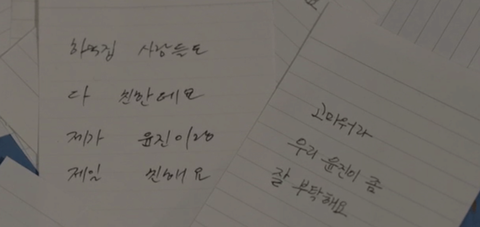 하숙집 사람들도
다 친한데요
제가 윤진이랑
제일 친해요
고마워라
우리 윤진이 좀
잘 부탁해요